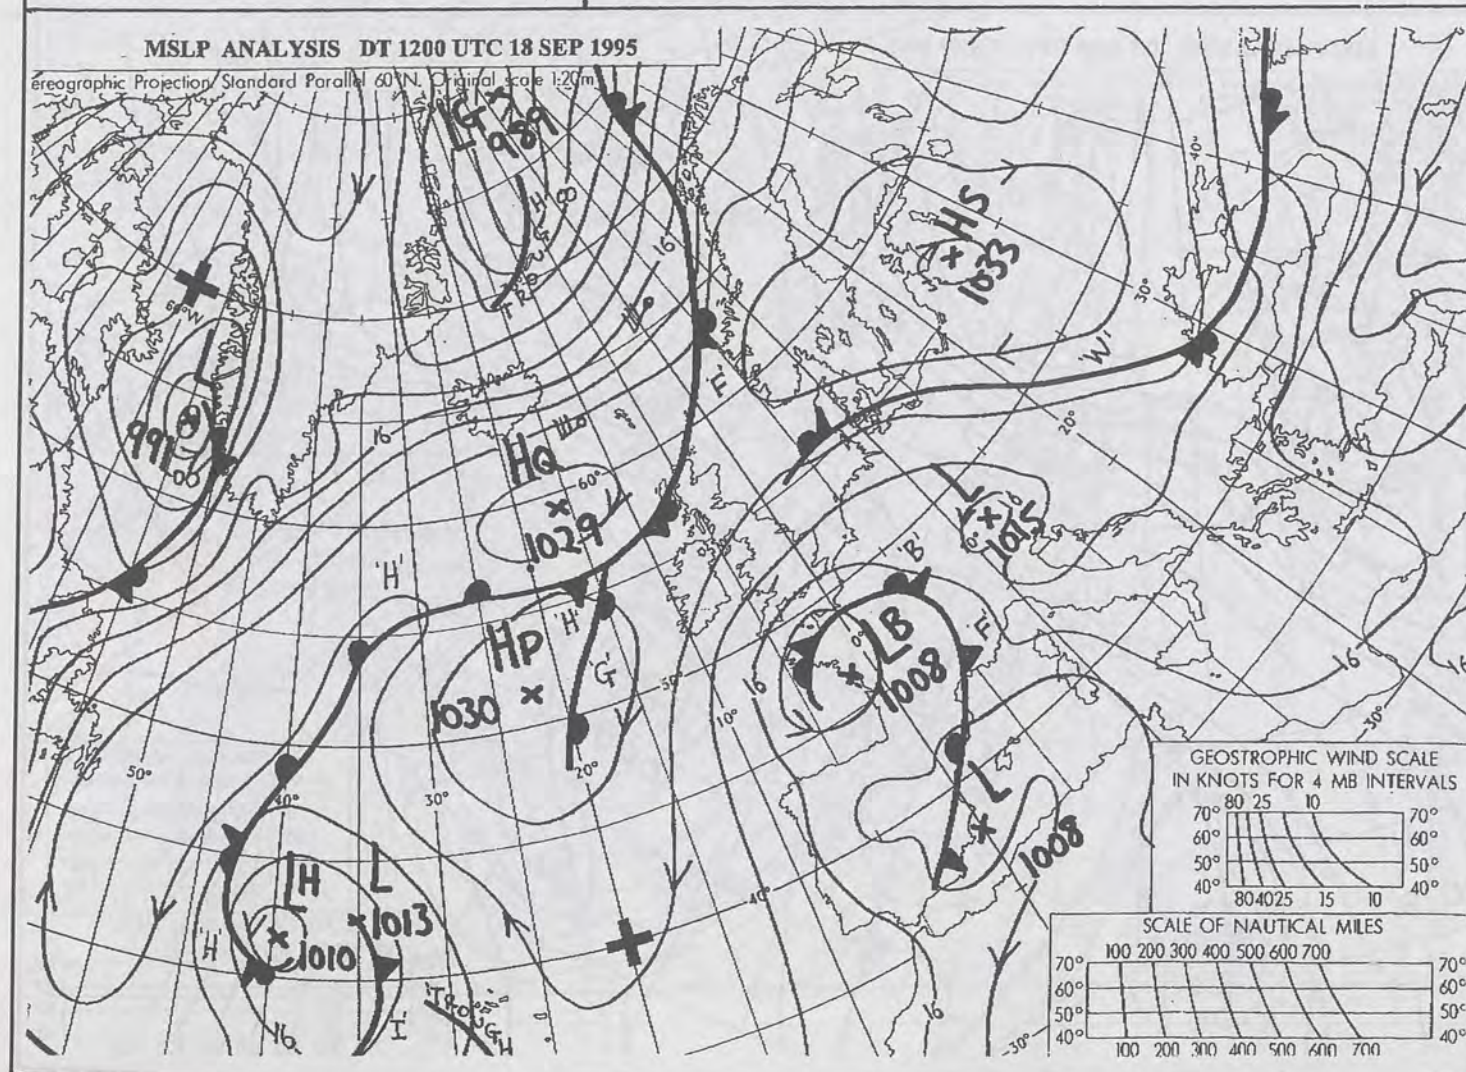 MSLP ANALYSIS DT 1200 UTC 18 SEP 1995
ereographic Projection Standard Parallel 60°N. Original scale 1:20m
LG
989
'H'
TROUGH
16
HS
1033
40°
30°
'W'
20°
60°W
L
991
16
'F'
HQ
1029
60°
L
1015
'H'
'H'
HP
1030
'G'
50°
20°
'B'
LB
1008
'F'
0°
16
10°
16
30°
50°
40°
30°
L
1008
40°
LH
1010
L
1013
'H'
16
'I'
'TROUGH
16
30°
GEOSTROPHIC WIND SCALE
IN KNOTS FOR 4 MB INTERVALS
80 25 10
70° 70°
60° 60°
50° 50°
40° 40°
80 40 25 15 10
SCALE OF NAUTICAL MILES
100 200 300 400 500 600 700
70° 70°
60° 60°
50° 50°
40° 40°
100 200 300 400 500 600 700